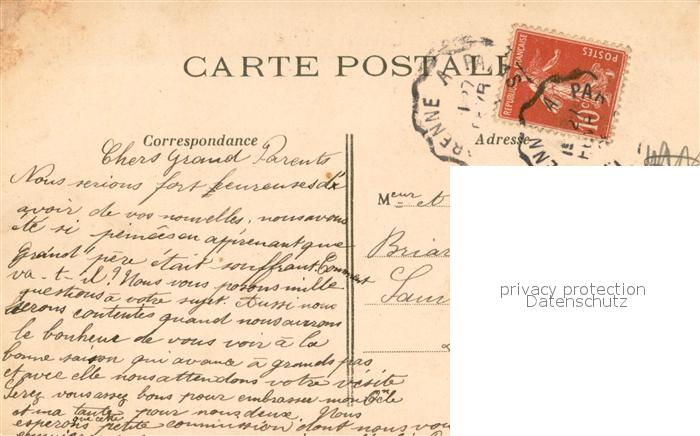 CARTE POSTALE
RENNE A PAS
REPUBLIQUE FRANÇAISE
POSTES
10
A PAR
Correspondance
Adresse
Chers Grand Parents
Nous serions fort heureuses d'
avoir de vos nouvelles, nous avons
été si peinées en apprenant que
Grand'père était souffrant. Comment
va-t-il? Nous vous posons mille
questions à votre sujet. Aussi nous
serons contentes quand nous aurons
le bonheur de vous voir à la
bonne saison qui avance à grands pas
et avec elle nous attendons votre visite
Serez vous assez bons pour embrasser mon Oncle
et ma tante pour nous deux. Nous
que cette
esperons petite commission dont nous vous
Meur et
Briar
privacy protection
Datenschutz